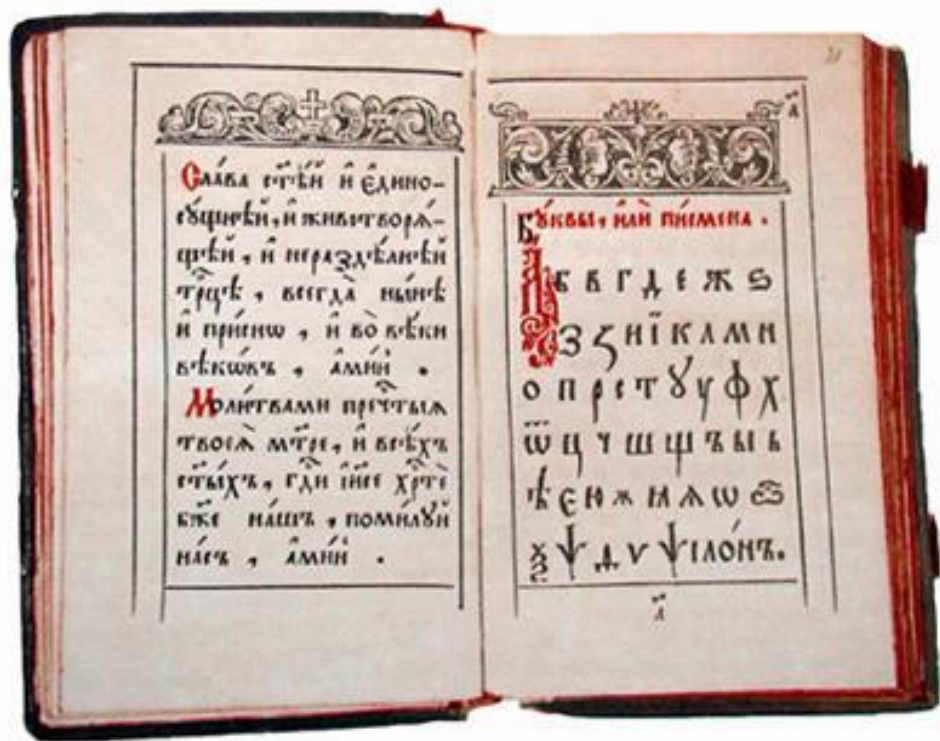 Сла́ва ст҃ѣ́й и҆ є҆дино-
сꙋ́щнѣй, и҆ животворѧ́-
щей, и҆ нераздѣ́лнѣй
трⷪ҇цѣ, всегда̀ ны́нѣ
и҆ при́снѡ, и҆ во̀ вѣ́ки
вѣкѡ́въ, а҆ми́нь.
Моли́твами пречⷭ҇тыѧ
твоеѧ̀ мт҃ре, и҆ всѣ́хъ
ст҃ы́хъ, гдⷭ҇и і҆и҃се хрⷭ҇тѐ
бж҃е на́шъ, поми́лꙋй
на́съ, а҆ми́нь.
21
а҃
Бꙋ́квы, и҆лѝ пи́смена.
А Б В Г Д Е Ж Ѕ
З Ꙁ И Ї К Л М Н
О П Р С Т Ꙋ У Ф Х
Ѿ Ц Ч Ш Щ Ъ Ы Ь
Ѣ Є Ю Ѫ Ꙗ Ѧ Ѡ
Ѯ Ѱ Ѵ Ѱіло́нъ.
а҃